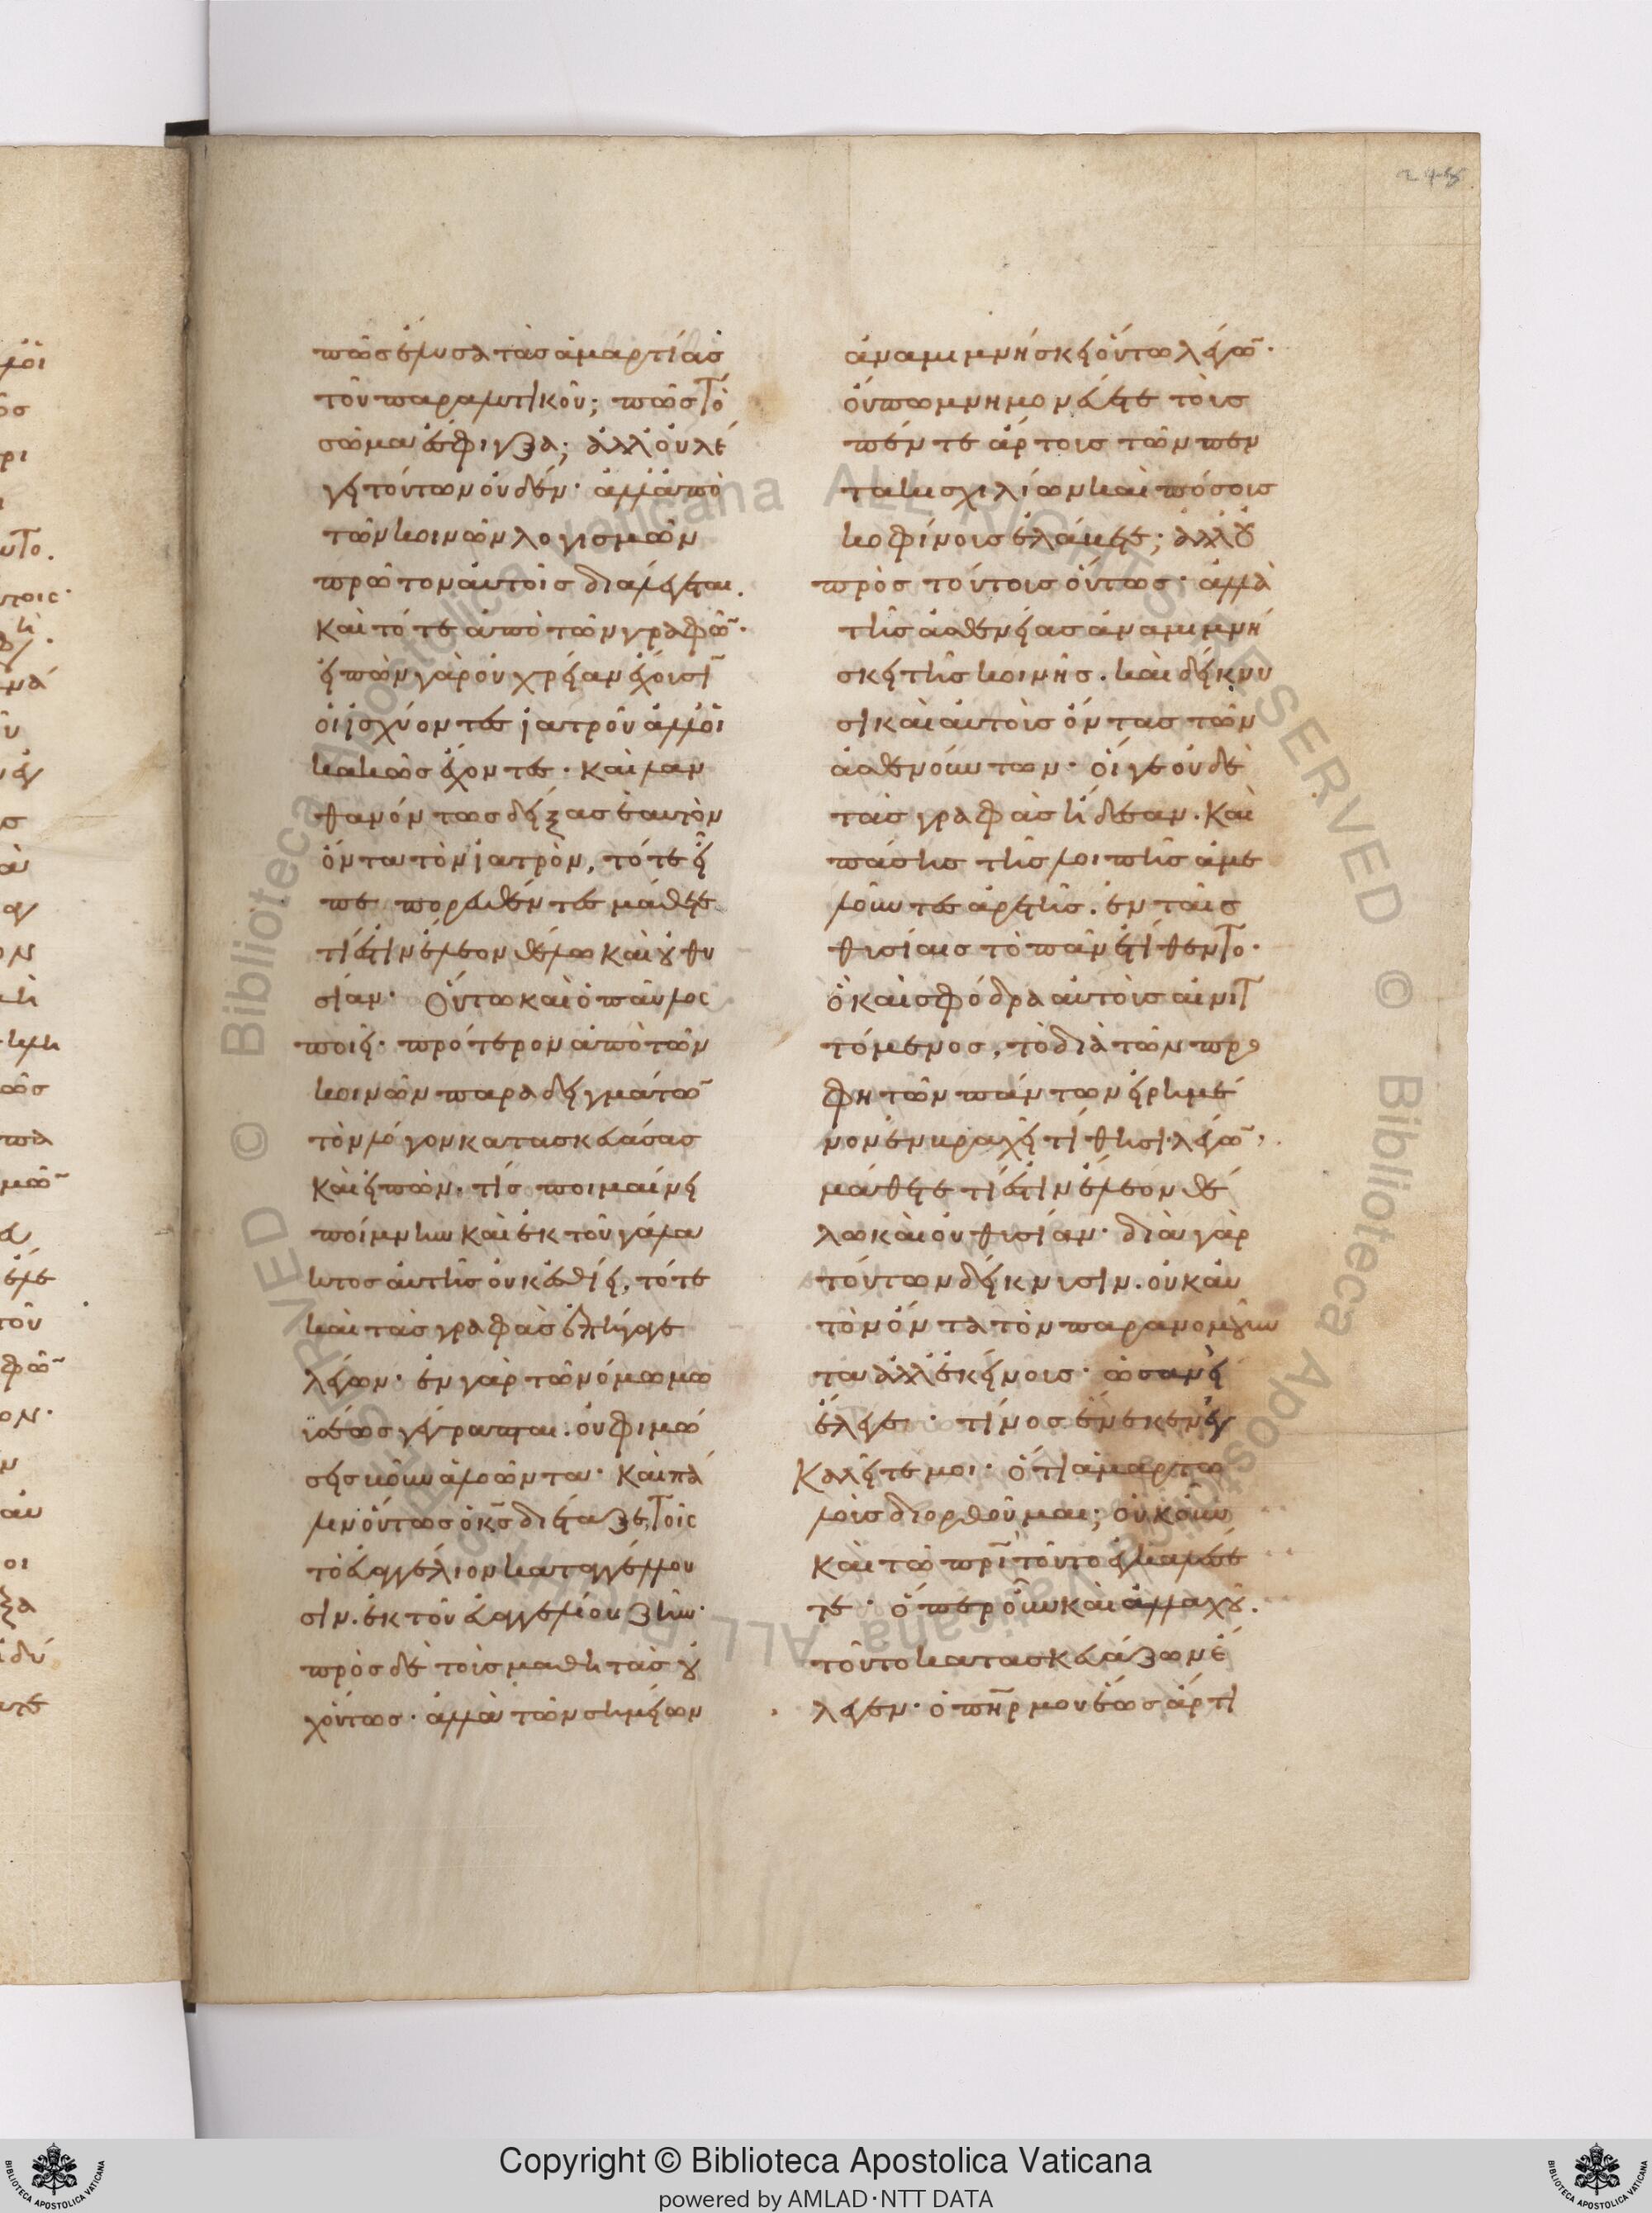 248
πῶς ἔλυσα τὰς ἁμαρτίας
τοῦ παραλυτικοῦ; πῶς τὸ
σῶμα ἔσφιγξα; ἀλλ' οὐ λέ
γει τούτων οὐδέν· ἀλλ' ἀπὸ
τῶν κοινῶν λογισμῶν
πρῶτον αὐτοῖς διαλέγεται.
Καὶ τότε ἀπὸ τῶν γραφῶ̄·
εἰπὼν γὰρ οὐ χρείαν ἔχουσῑ
οἱ ἰσχύοντες ἰατροῦ ἀλλ' οἱ
κακῶς ἔχοντες· Καὶ λαν
θανόντως δείξας ἑαυτὸν
ὄντα τὸν ἰατρὸν, τότε εἶ
πε πορευθέντες μάθετε
τί ἐστὶν ἔλεον θέλω καὶ οὐ θυ
σίαν· Οὕτω καὶ ὁ παῦλος
ποιεῖ· πρότερον ἀπὸ τῶν
κοινῶν παραδειγμάτω̄
τὸν λόγον κατασκευάσας
Καὶ εἰπὼν· τίς ποιμαίνει
ποίμνην καὶ ἐκ τοῦ γάλα
κτος αὐτῆς οὐκ ἐσθίει, τότε
καὶ τὰς γραφὰς ἐπήγαγε
λέγων· ἐν γὰρ τῶ νόμω μω
ϋσέως γέγραπται· οὐ φιμώ
σεις βοῦν ἀλοῶντα· Καὶ πά
λιν οὕτως ὁ κ̄ς διέταξε, τοῖς
τὸ εὐαγγέλιον καταγγέλλου
σιν· ἐκ τοῦ εὐαγγελίου ζῆν·
πρὸς δὲ τοὺς μαθητὰς οὐ
χ' οὕτως· ἀλλὰ τῶν σημείων
ἀναμιμνήσκει οὕτω λέγω̄·
οὔπω μνημονεύετε τοὺς
πέντε ἄρτους τῶν πεν
τακισχιλίων καὶ πόσους
κοφίνους ἐλάβετε; ἀλλ' οὐ
πρὸς τούτους οὕτως· ἀλλὰ
τῆς ἀσθενείας ἀναμιμνή
σκει τῆς κοινῆς· καὶ δείκνυ
σι καὶ αὐτοὺς ὄντας τῶν
ἀσθενούντων· οἵ γε οὐδὲ
τὰς γραφὰς ἤδεσαν· Καὶ
πάσης τῆς λοιπῆς ἀμε
λοῦντες ἀρετῆς· ἐν ταῖς
θυσίαις τὸ πᾶν ἐτίθεντο·
ὃ καὶ σφόδρα αὐτοὺς αἰνιτ
τόμενος, τὸ διὰ τῶν προ
φητῶν πάντων εἰρημέ
νον ἐν βραχεῖ τίθησι λέγω̄,
μάθετε τί ἐστὶν ἔλεον θέ
λω καὶ οὐ θυσίαν· διὰ γὰρ
τούτων δείκνυσιν· οὐκ αὐ
τὸν ὄντα τὸν παρανομοῦν
τα ἀλλ' ἐκείνους· ὡσανεὶ
ἔλεγε· τίνος ἕνεκεν ἐγ
Καλεῖτέ μοι· ὅτι ἁμαρτω
λοὺς διορθοῦμαι; οὐκοῦν
Καὶ τῶ πρ̄ι τοῦτο ἐγκαλέσε
τε· ὅπερ οὖν καὶ ἀλλαχοῦ·
τοῦτο κατασκευάζων ἔ
λεγεν· ὁ πη̄ρ μου ἕως ἄρτι
Copyright © Biblioteca Apostolica Vaticana
powered by AMLAD·NTT DATA